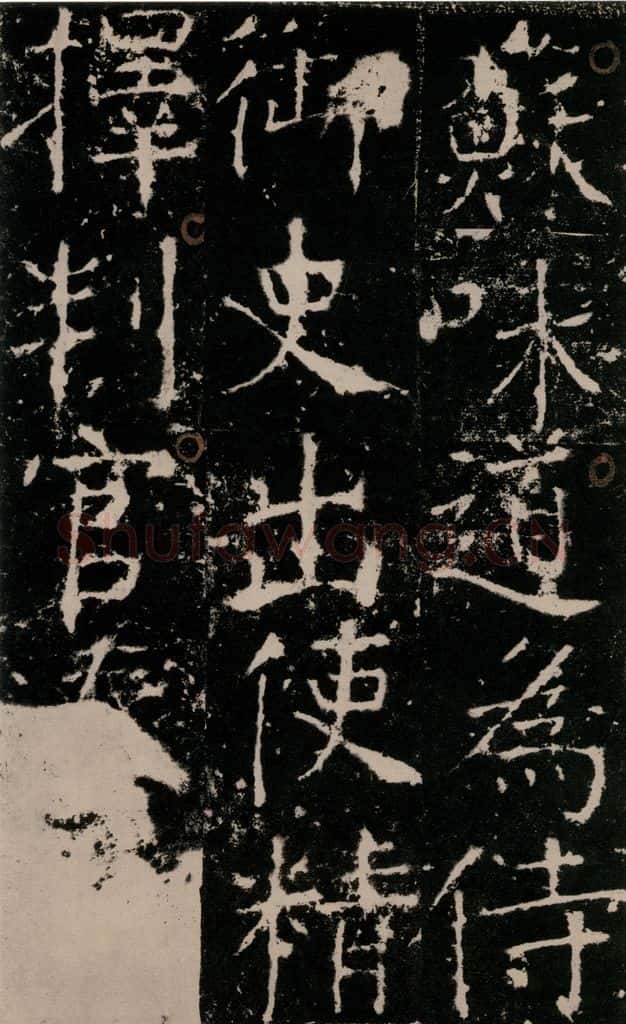 蘇味道為侍
御史出使精
擇判官
Shufawang.CN